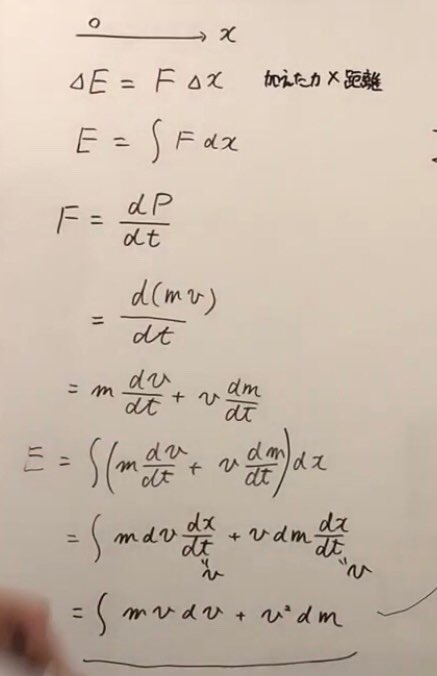 0 → x
ΔE = F Δx 加えた力×距離
E = ∫ F dx
F = dP/dt
= d(mv)/dt
= m dv/dt + v dm/dt
E = ∫(m dv/dt + v dm/dt)dx
= ∫ m dv dx/dt + v dm dx/dt
"v "v
= ∫ m v dv + v² dm